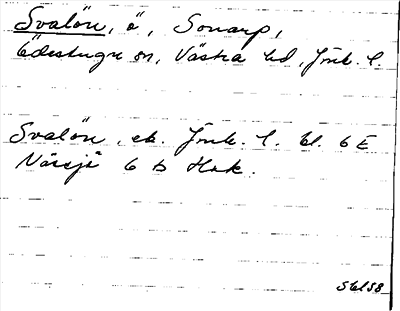 Svalön, ö, Sonarp,
Ödestugu sn, Västra hd, Jmk. l.
Svalön, ek. Jmk. l. bl. 6 E
Näsjö 6 D Hok.
SWS8